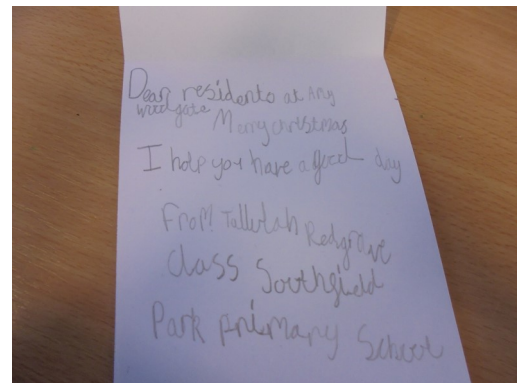 Dear residents at Any
woodgate
Merry christmas
I hope you have a good day
From Tallulah Redgrave
class Southfield
Park primary School